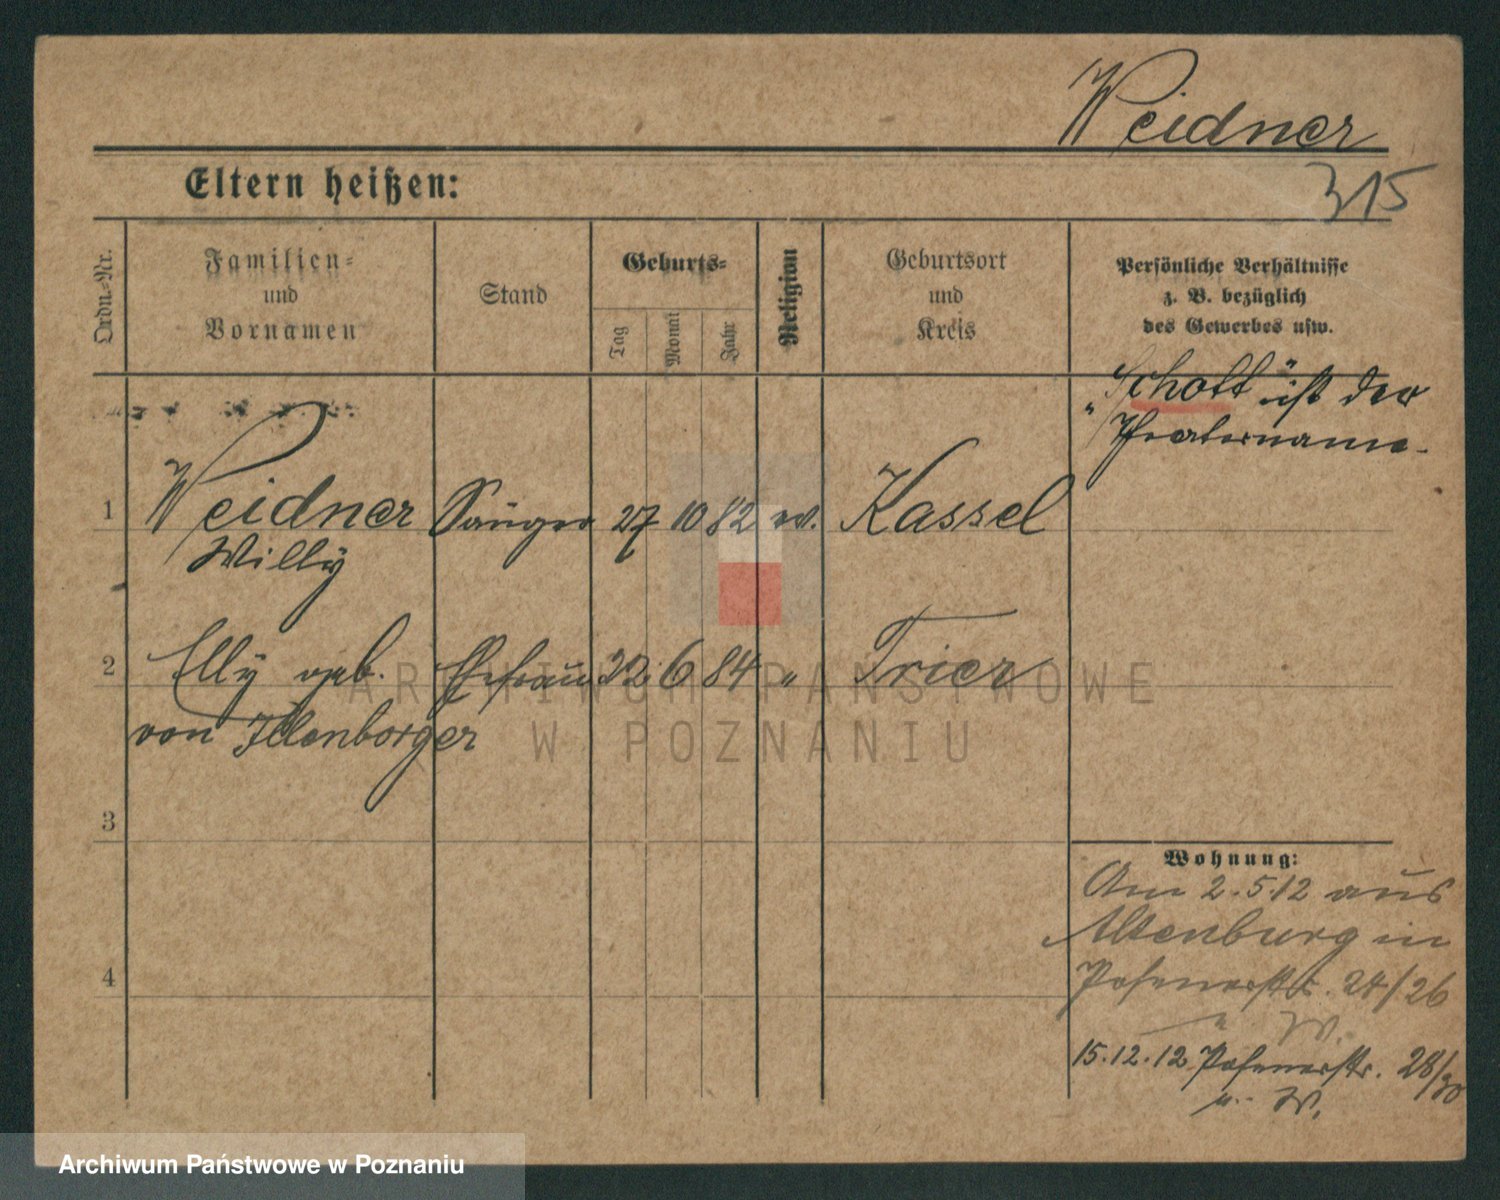 Weidner
315
Eltern heißen:
Ordn.-Nr.
Familien-
und
Vornamen
Stand
Geburts-
Tag
Monat
Jahr
Religion
Geburtsort
und
Kreis
Persönliche Verhältnisse
z. B. bezüglich
des Gewerbes usw.
"Schott" ist der
Theatername.
1 Weidner Sänger 27 10 82 ev. Kassel
Willy
2 Elly geb. Ehefrau 22 6 84 " Trier
von Illenberger
3
4
Wohnung:
Am 2.5.12 aus
Altenburg in
Posenerstr. 24/26
n. W.
15.12.12 Posenerstr. 28/30
n. W.
ARCHIWUM PAŃSTWOWE
W POZNANIU
Archiwum Państwowe w Poznaniu